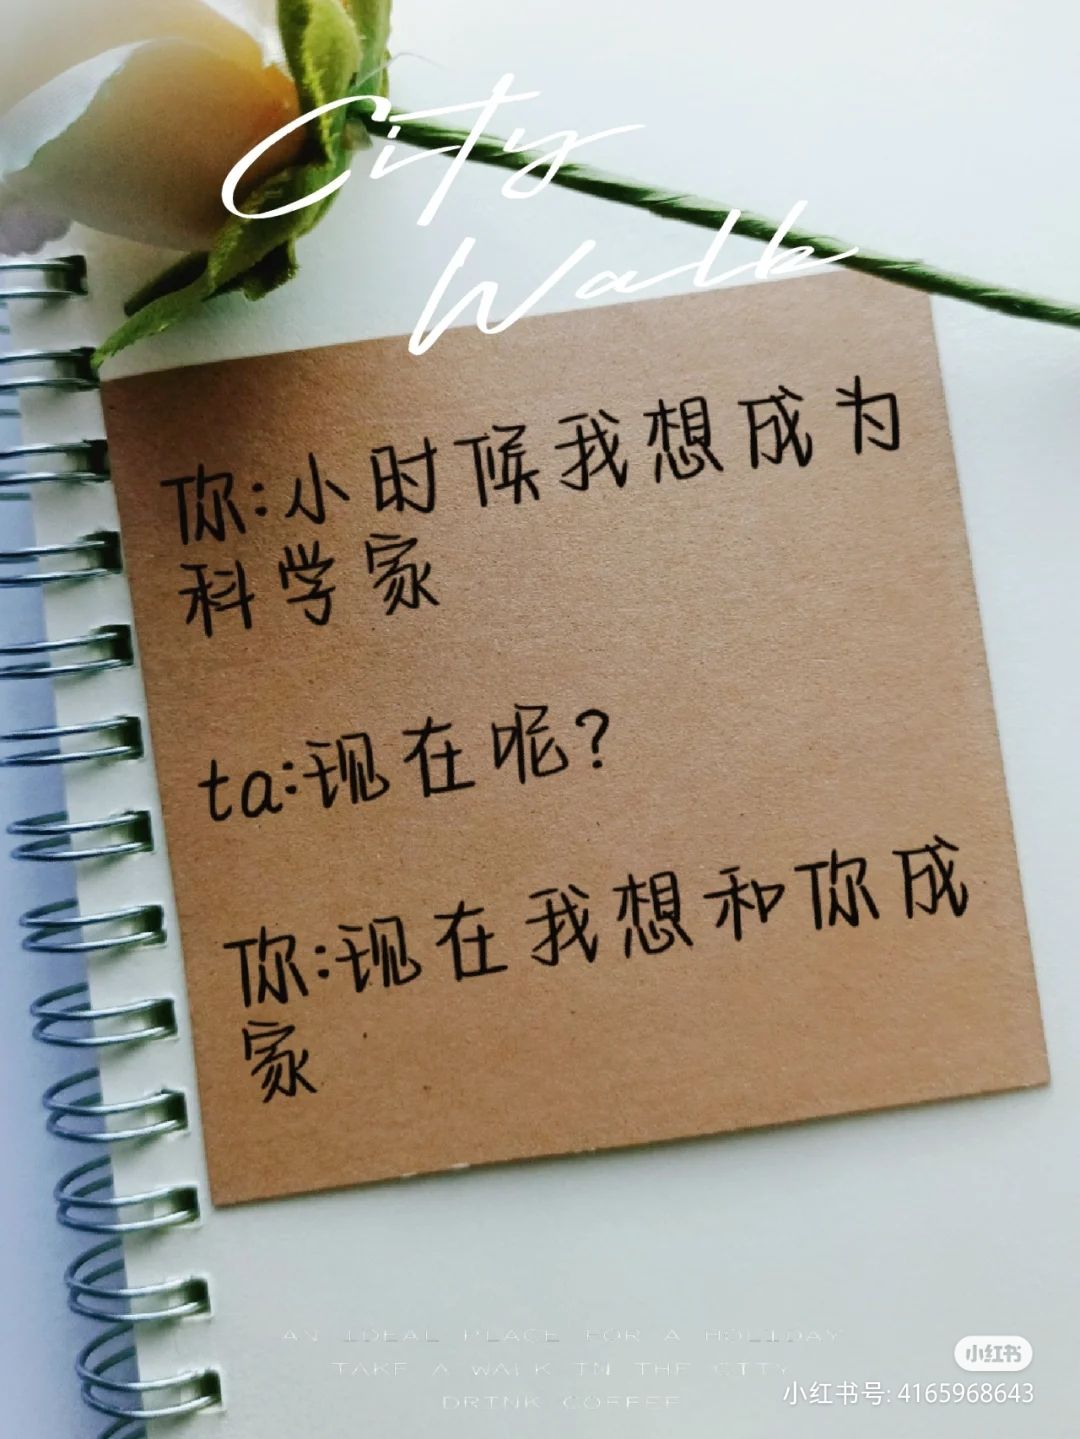 City
Walk
你:小时候我想成为
科学家
ta:现在呢?
你:现在我想和你成
家
AN IDEAL PLACE FOR A HOLIDAY
TAKE A WALK IN THE CITY
DRINK COFFEE
小红书
小红书号: 4165968643